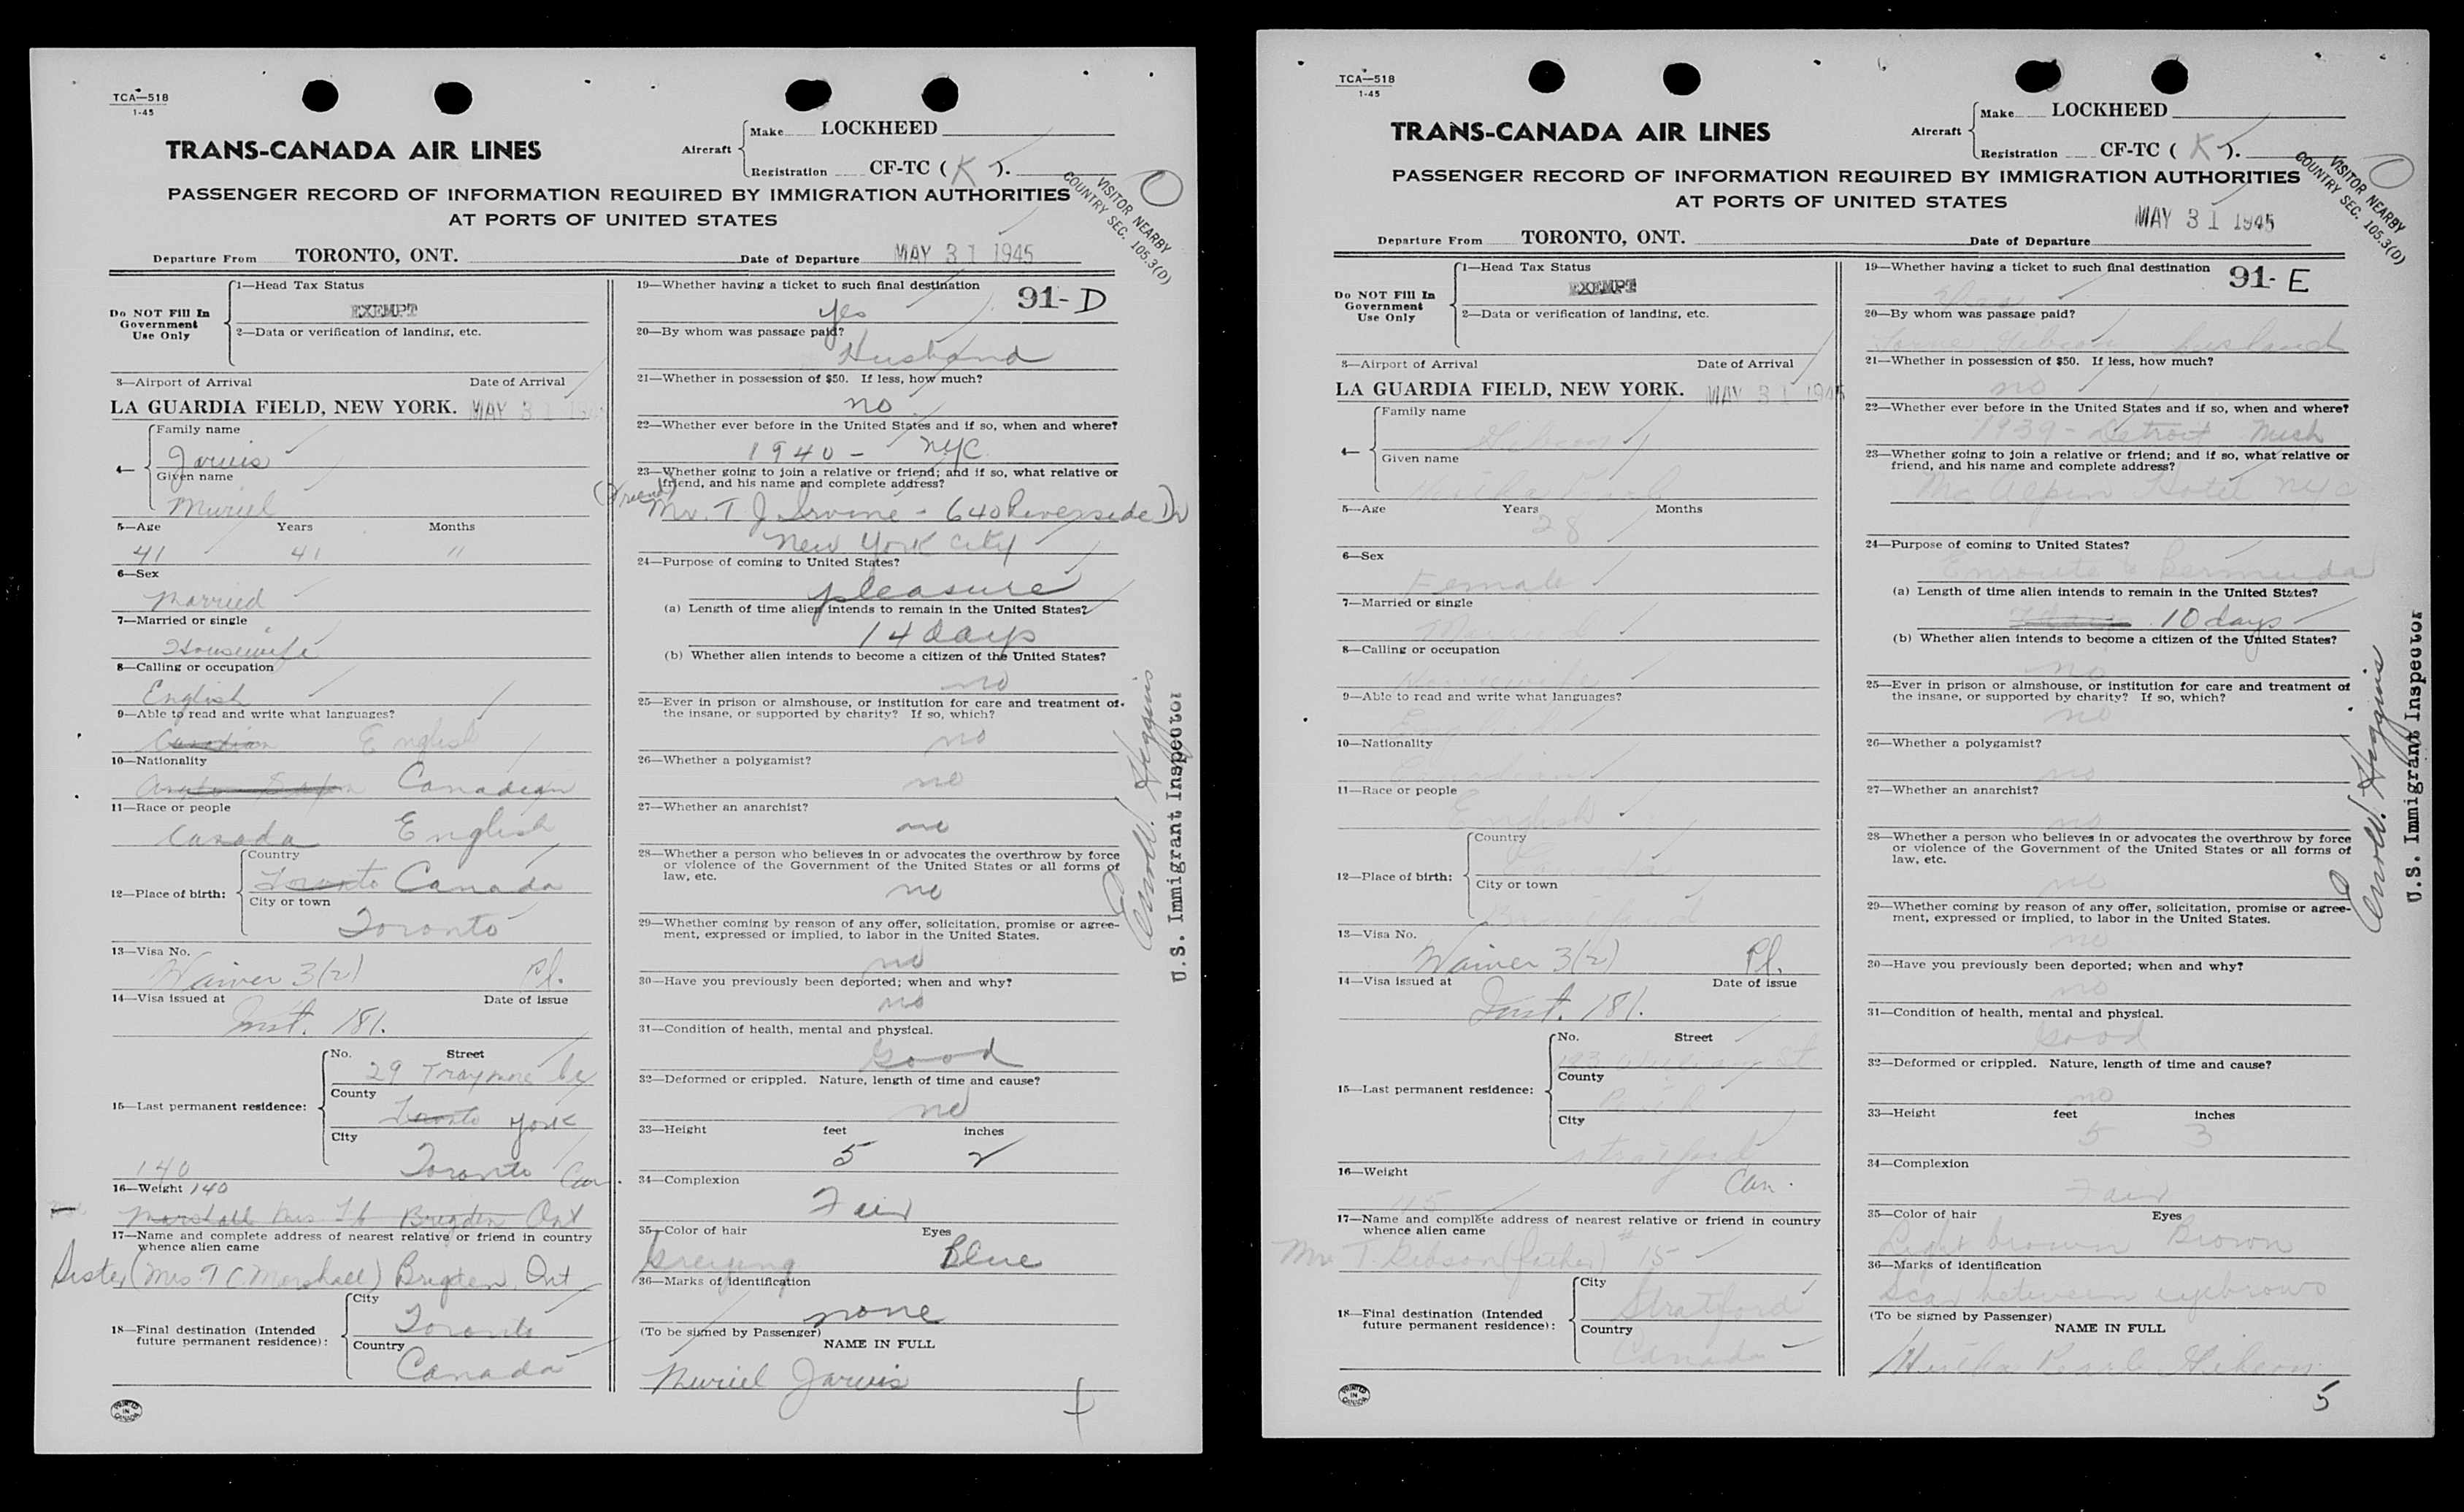 TCA—518
1-45
TRANS-CANADA AIR LINES
Aircraft
Make LOCKHEED
Registration CF-TC ( K ).
PASSENGER RECORD OF INFORMATION REQUIRED BY IMMIGRATION AUTHORITIES
AT PORTS OF UNITED STATES
VISITOR NEARBY
COUNTRY SEC. 105.3(D)
Departure From TORONTO, ONT.
Date of Departure MAY 31 1945
Do NOT Fill In
Government
Use Only
1—Head Tax Status
EXEMPT
2—Data or verification of landing, etc.
3—Airport of Arrival Date of Arrival
LA GUARDIA FIELD, NEW YORK. MAY 31 194
4—
Family name
Jarvis
Given name
Muriel
5—Age Years Months
41 41 "
6—Sex
Married
7—Married or single
Housewife
8—Calling or occupation
English
9—Able to read and write what languages?
Canadian English
10—Nationality
Anglo Saxon Canadian
11—Race or people
Canada English
12—Place of birth:
Country
Toronto Canada
City or town
Toronto
13—Visa No.
Waiver 3(2) Pl.
14—Visa issued at Date of issue
Inst. 181.
15—Last permanent residence:
No. Street
29 Traymore
County
Toronto York
City
140 Toronto Can.
16—Weight 140
Marshall Mrs Brigden Ont
17—Name and complete address of nearest relative or friend in country
whence alien came
Sister (Mrs T C Marshall) Brigden, Ont
18—Final destination (Intended
future permanent residence):
City
Toronto
Country
Canada
PRINTED IN CANADA
19—Whether having a ticket to such final destination
91-D
yes
20—By whom was passage paid?
Husband
21—Whether in possession of $50. If less, how much?
no
22—Whether ever before in the United States and if so, when and where?
1940 - NYC
23—Whether going to join a relative or friend; and if so, what relative or
friend, and his name and complete address?
(Friend)
Mr. T J Irvine - 640 Riverside Dr
New York City
24—Purpose of coming to United States?
pleasure
(a) Length of time alien intends to remain in the United States?
14 days
(b) Whether alien intends to become a citizen of the United States?
no
25—Ever in prison or almshouse, or institution for care and treatment of
the insane, or supported by charity? If so, which?
no
26—Whether a polygamist?
no
27—Whether an anarchist?
no
28—Whether a person who believes in or advocates the overthrow by force
or violence of the Government of the United States or all forms of
law, etc.
no
29—Whether coming by reason of any offer, solicitation, promise or agree-
ment, expressed or implied, to labor in the United States.
no
30—Have you previously been deported; when and why?
no
31—Condition of health, mental and physical.
Good
32—Deformed or crippled. Nature, length of time and cause?
no
33—Height feet inches
5 2
34—Complexion
Fair
35—Color of hair Eyes
Greying Blue
36—Marks of identification
none
(To be signed by Passenger)
NAME IN FULL
Muriel Jarvis
Higgins
U.S. Immigrant Inspector
TCA—518
1-45
TRANS-CANADA AIR LINES
Aircraft
Make LOCKHEED
Registration CF-TC ( K ).
PASSENGER RECORD OF INFORMATION REQUIRED BY IMMIGRATION AUTHORITIES
AT PORTS OF UNITED STATES
VISITOR NEARBY
COUNTRY SEC. 105.3(D)
Departure From TORONTO, ONT.
Date of Departure MAY 31 1945
Do NOT Fill In
Government
Use Only
1—Head Tax Status
EXEMPT
2—Data or verification of landing, etc.
3—Airport of Arrival Date of Arrival
LA GUARDIA FIELD, NEW YORK. MAY 31 1945
4—
Family name
Gibson
Given name
Pearl
5—Age Years Months
28
6—Sex
Female
7—Married or single
Married
8—Calling or occupation
Housewife
9—Able to read and write what languages?
English
10—Nationality
Canadian
11—Race or people
English
12—Place of birth:
Country
Canada
City or town
13—Visa No.
Waiver 3(2) Pl.
14—Visa issued at Date of issue
Inst. 181.
15—Last permanent residence:
No. Street
St
County
Perth
City
Stratford
16—Weight Can.
115
17—Name and complete address of nearest relative or friend in country
whence alien came
Mr T. Gibson (father) # 15
18—Final destination (Intended
future permanent residence):
City
Stratford
Country
Canada
PRINTED IN CANADA
19—Whether having a ticket to such final destination
91-E
Yes
20—By whom was passage paid?
Gibson husband
21—Whether in possession of $50. If less, how much?
no
22—Whether ever before in the United States and if so, when and where?
1939 - Detroit Mich
23—Whether going to join a relative or friend; and if so, what relative or
friend, and his name and complete address?
Mc Alpin Hotel NYC
24—Purpose of coming to United States?
Enroute to Bermuda
(a) Length of time alien intends to remain in the United States?
10 days
(b) Whether alien intends to become a citizen of the United States?
no
25—Ever in prison or almshouse, or institution for care and treatment of
the insane, or supported by charity? If so, which?
no
26—Whether a polygamist?
no
27—Whether an anarchist?
no
28—Whether a person who believes in or advocates the overthrow by force
or violence of the Government of the United States or all forms of
law, etc.
no
29—Whether coming by reason of any offer, solicitation, promise or agree-
ment, expressed or implied, to labor in the United States.
no
30—Have you previously been deported; when and why?
no
31—Condition of health, mental and physical.
Good
32—Deformed or crippled. Nature, length of time and cause?
no
33—Height feet inches
5 3
34—Complexion
Fair
35—Color of hair Eyes
Light brown Brown
36—Marks of identification
Scar between eyebrows
(To be signed by Passenger)
NAME IN FULL
Pearl Gibson
5
Higgins
U.S. Immigrant Inspector